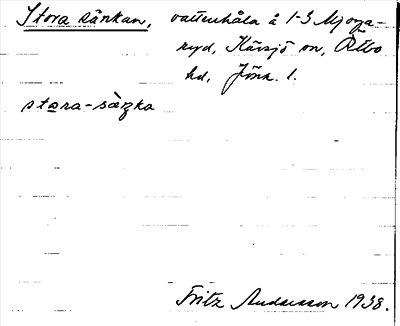 Stora sänkan, vattenhåla å 1-3 Mjoga-
ryd, Kävsjö sn, Östbo
hd, Jönk. l.
stora-sàŋka
Fritz Andersson 1938.